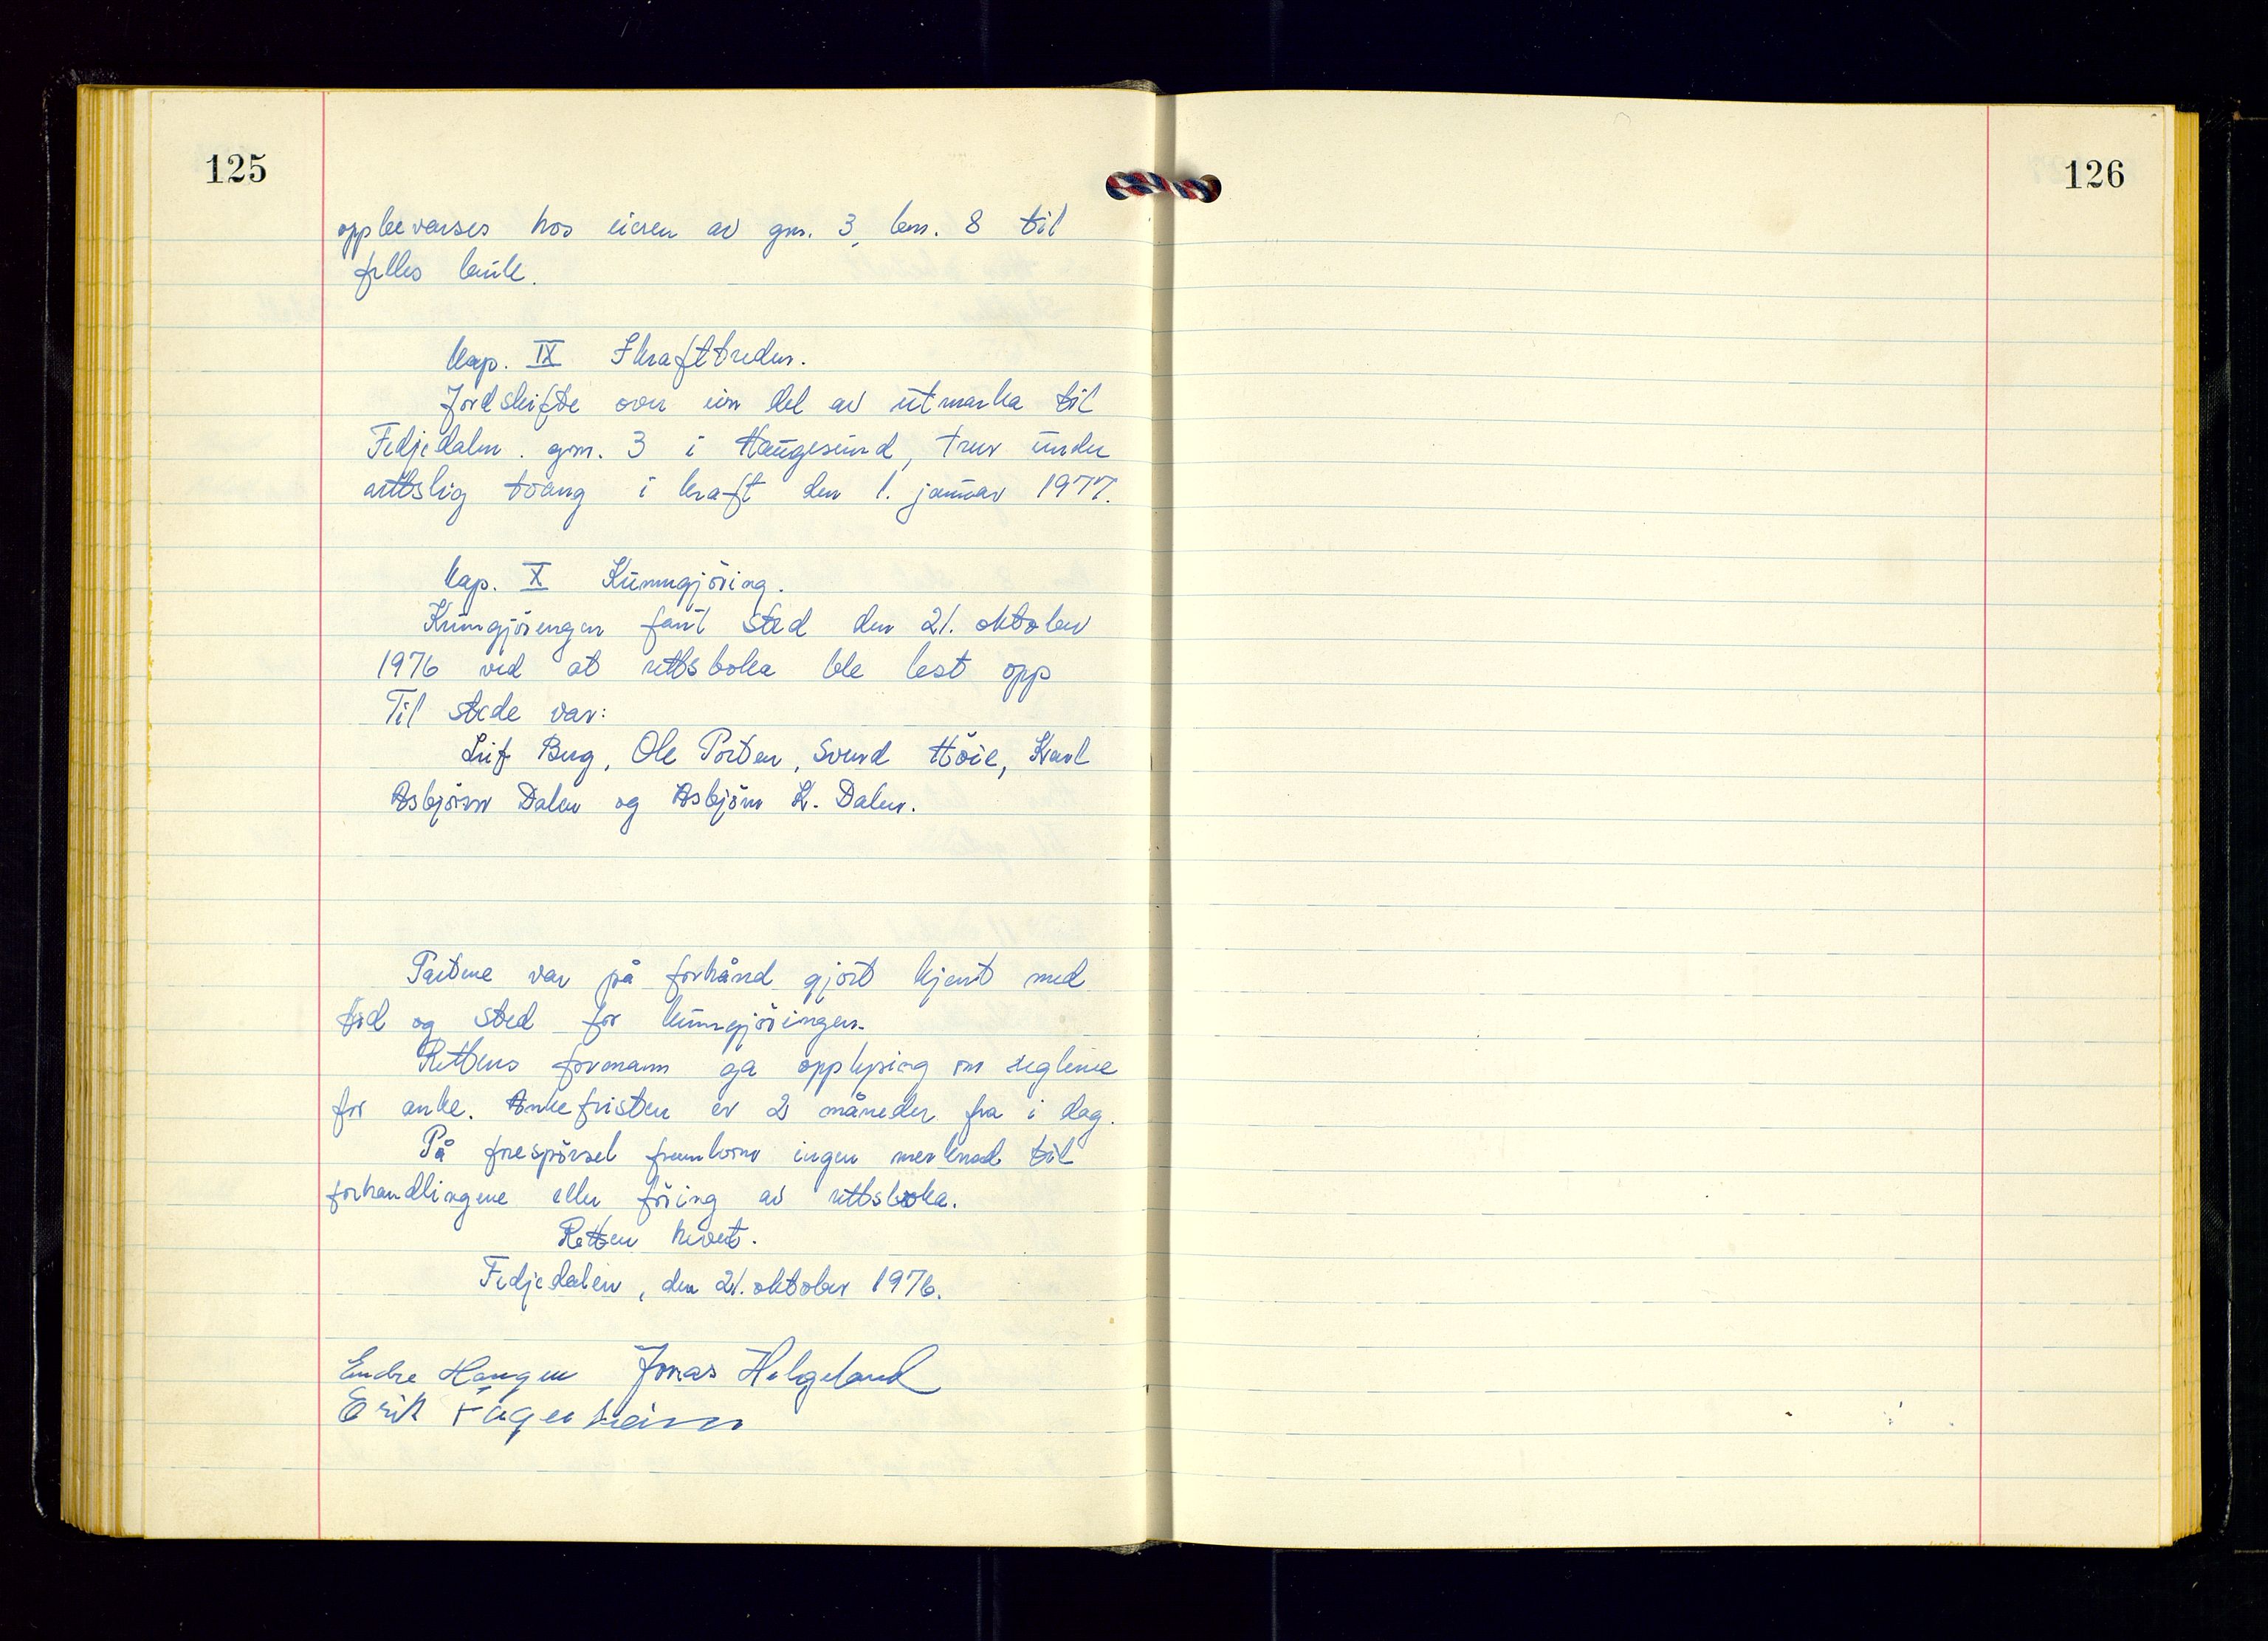 125
oppbevares hos eieren av gnr. 3, bnr. 8 til
felles bruk.
Kap. IX Ikrafttreden.
Jordskifte over ein del av utmarka til
Fedjedalen gnr. 3 i Haugesund, trer under
rettslig tvang i kraft den 1. januar 1977.
Kap. X Kunngjöring.
Kunngjöringen fant sted den 21. oktober
1976 ved at rettsboka ble lest opp
Til stede var:
Leif Berg, Ole Porten, Svend Höie, Karl
Asbjörn Dalen og Asbjörn K. Dalen.
Partene var på forhånd gjort kjent med
tid og sted for kunngjöringen.
Rettens formann ga opplysing om reglene
for anke. Ankefristen er 2 måneder fra i dag.
På forespörsel framkom ingen merknad til
forhandlingene eller föring av rettsboka.
Retten hevet.
Fedjedalen, den 21. oktober 1976.
Endre Haugen Jonas Helgeland
Erik Fagerheim
126